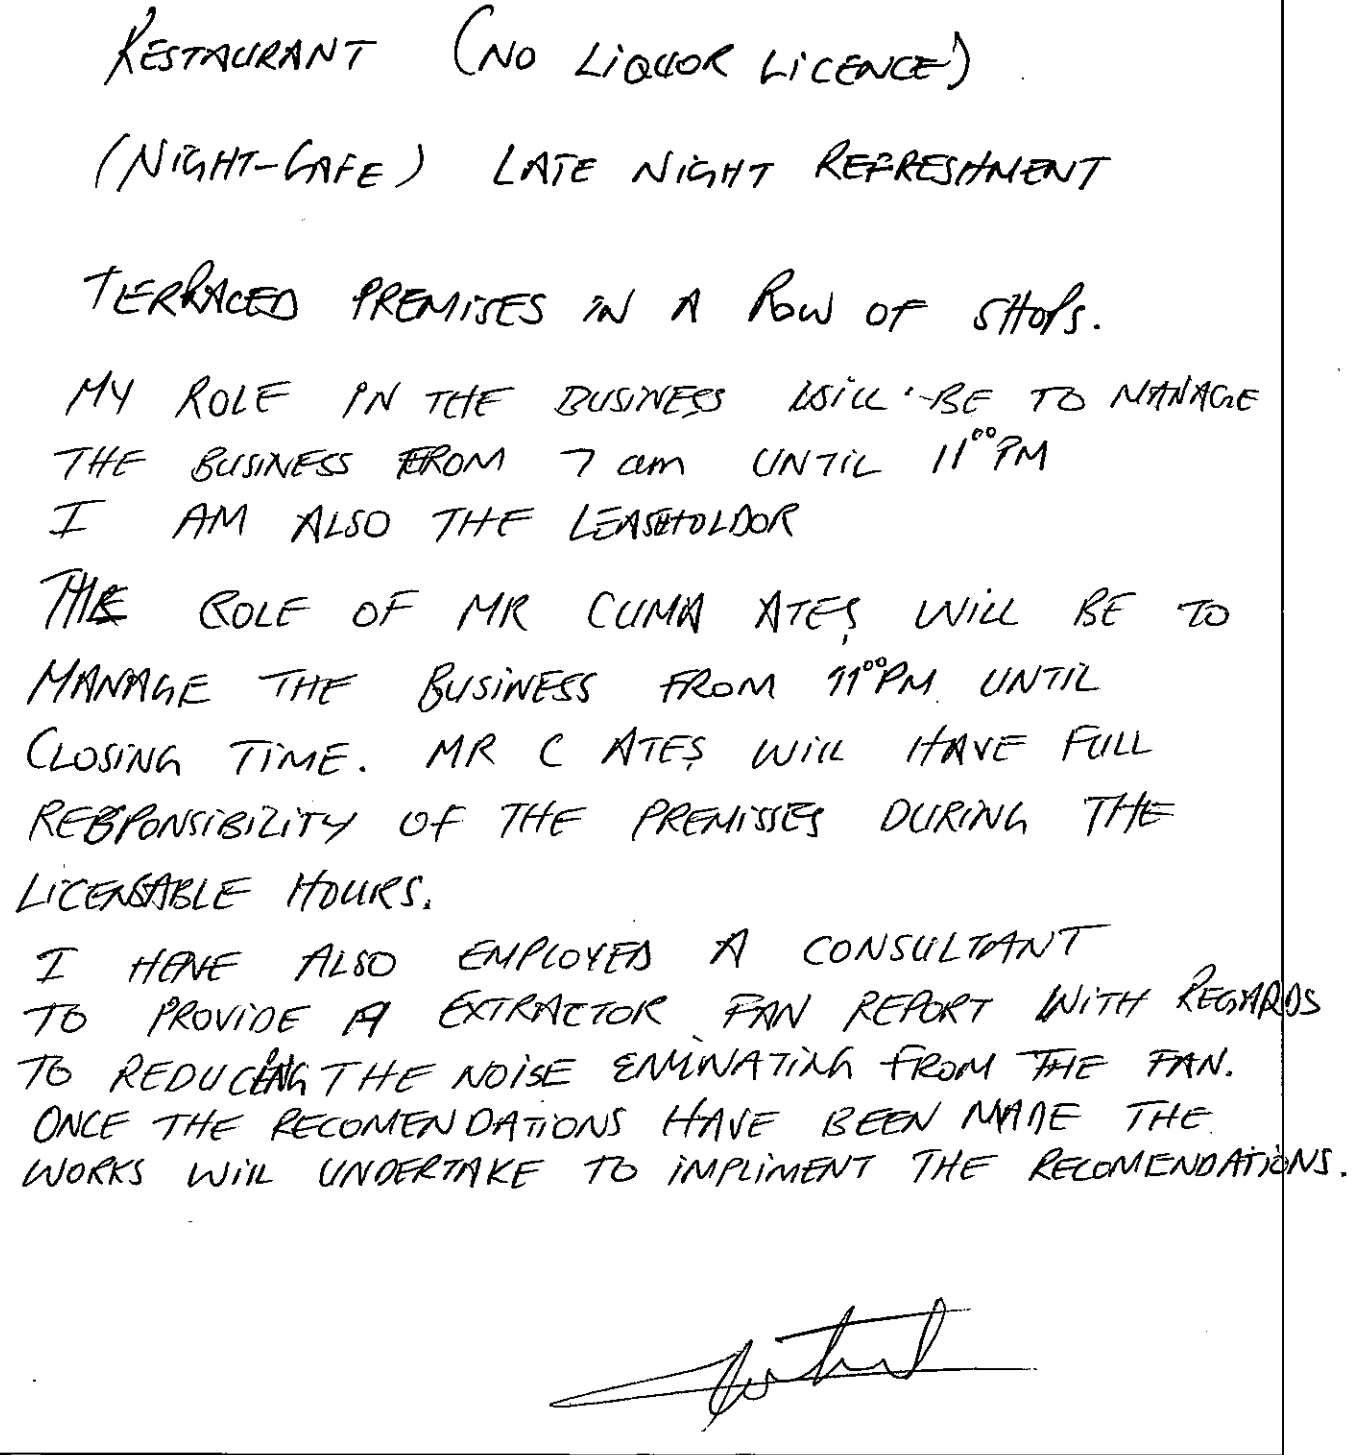 RESTAURANT (NO LIQUOR LICENCE)
(NIGHT-CAFE) LATE NIGHT REFRESHMENT
TERRACED PREMISES IN A ROW OF SHOPS.
MY ROLE IN THE BUSINESS WILL BE TO MANAGE
THE BUSINESS FROM 7 am UNTIL 11⁰⁰PM
I AM ALSO THE LEASEHOLDOR
THE ROLE OF MR CUMA ATEŞ WILL BE TO
MANAGE THE BUSINESS FROM 11⁰⁰PM UNTIL
CLOSING TIME. MR C ATEŞ WILL HAVE FULL
RESPONSIBILITY OF THE PREMISSES DURING THE
LICENSABLE HOURS.
I HAVE ALSO EMPLOYED A CONSULTANT
TO PROVIDE A EXTRACTOR FAN REPORT WITH REGARDS
TO REDUCING THE NOISE EMINATING FROM THE FAN.
ONCE THE RECOMENDATIONS HAVE BEEN MADE THE
WORKS WILL UNDERTAKE TO IMPLIMENT THE RECOMENDATIONS.